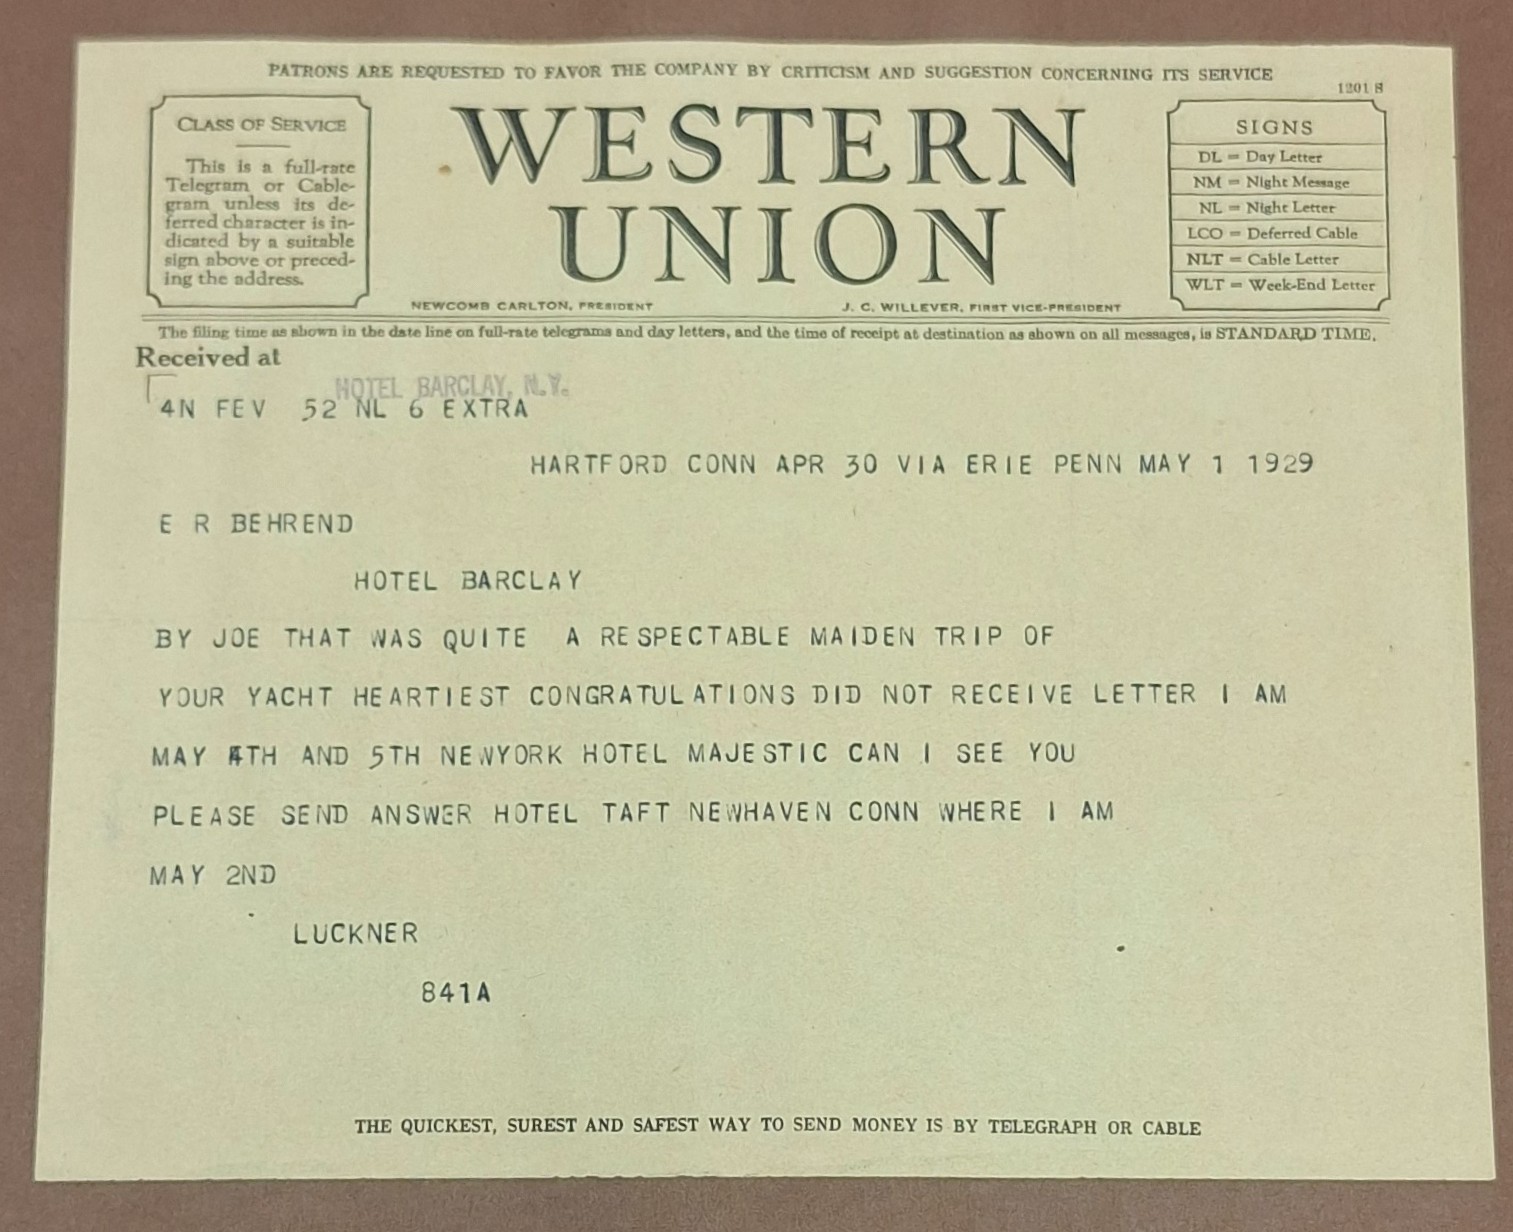 PATRONS ARE REQUESTED TO FAVOR THE COMPANY BY CRITICISM AND SUGGESTION CONCERNING ITS SERVICE
1201 S
CLASS OF SERVICE
This is a full-rate
Telegram or Cable-
gram unless its de-
ferred character is in-
dicated by a suitable
sign above or preced-
ing the address.
WESTERN
UNION
NEWCOMB CARLTON, PRESIDENT
J. C. WILLEVER, FIRST VICE-PRESIDENT
SIGNS
DL = Day Letter
NM = Night Message
NL = Night Letter
LCO = Deferred Cable
NLT = Cable Letter
WLT = Week-End Letter
The filing time as shown in the date line on full-rate telegrams and day letters, and the time of receipt at destination as shown on all messages, is STANDARD TIME.
Received at
HOTEL BARCLAY, N.Y.
4N FEV 52 NL 6 EXTRA
HARTFORD CONN APR 30 VIA ERIE PENN MAY 1 1929
E R BEHREND
HOTEL BARCLAY
BY JOE THAT WAS QUITE A RESPECTABLE MAIDEN TRIP OF
YOUR YACHT HEARTIEST CONGRATULATIONS DID NOT RECEIVE LETTER I AM
MAY 4TH AND 5TH NEWYORK HOTEL MAJESTIC CAN I SEE YOU
PLEASE SEND ANSWER HOTEL TAFT NEWHAVEN CONN WHERE I AM
MAY 2ND
LUCKNER
841A
THE QUICKEST, SUREST AND SAFEST WAY TO SEND MONEY IS BY TELEGRAPH OR CABLE